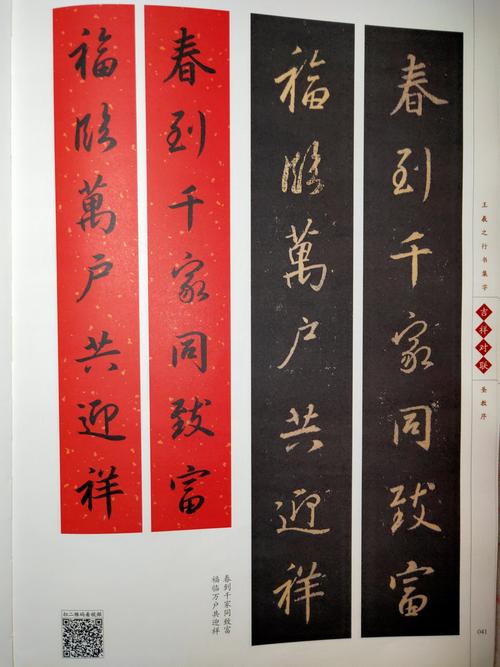 春到千家同致富
福臨萬户共迎祥
春到千家同致富
福臨萬户共迎祥
王羲之行书集字
吉祥对联
圣教序
春到千家同致富
福临万户共迎祥
扫二维码看视频
041